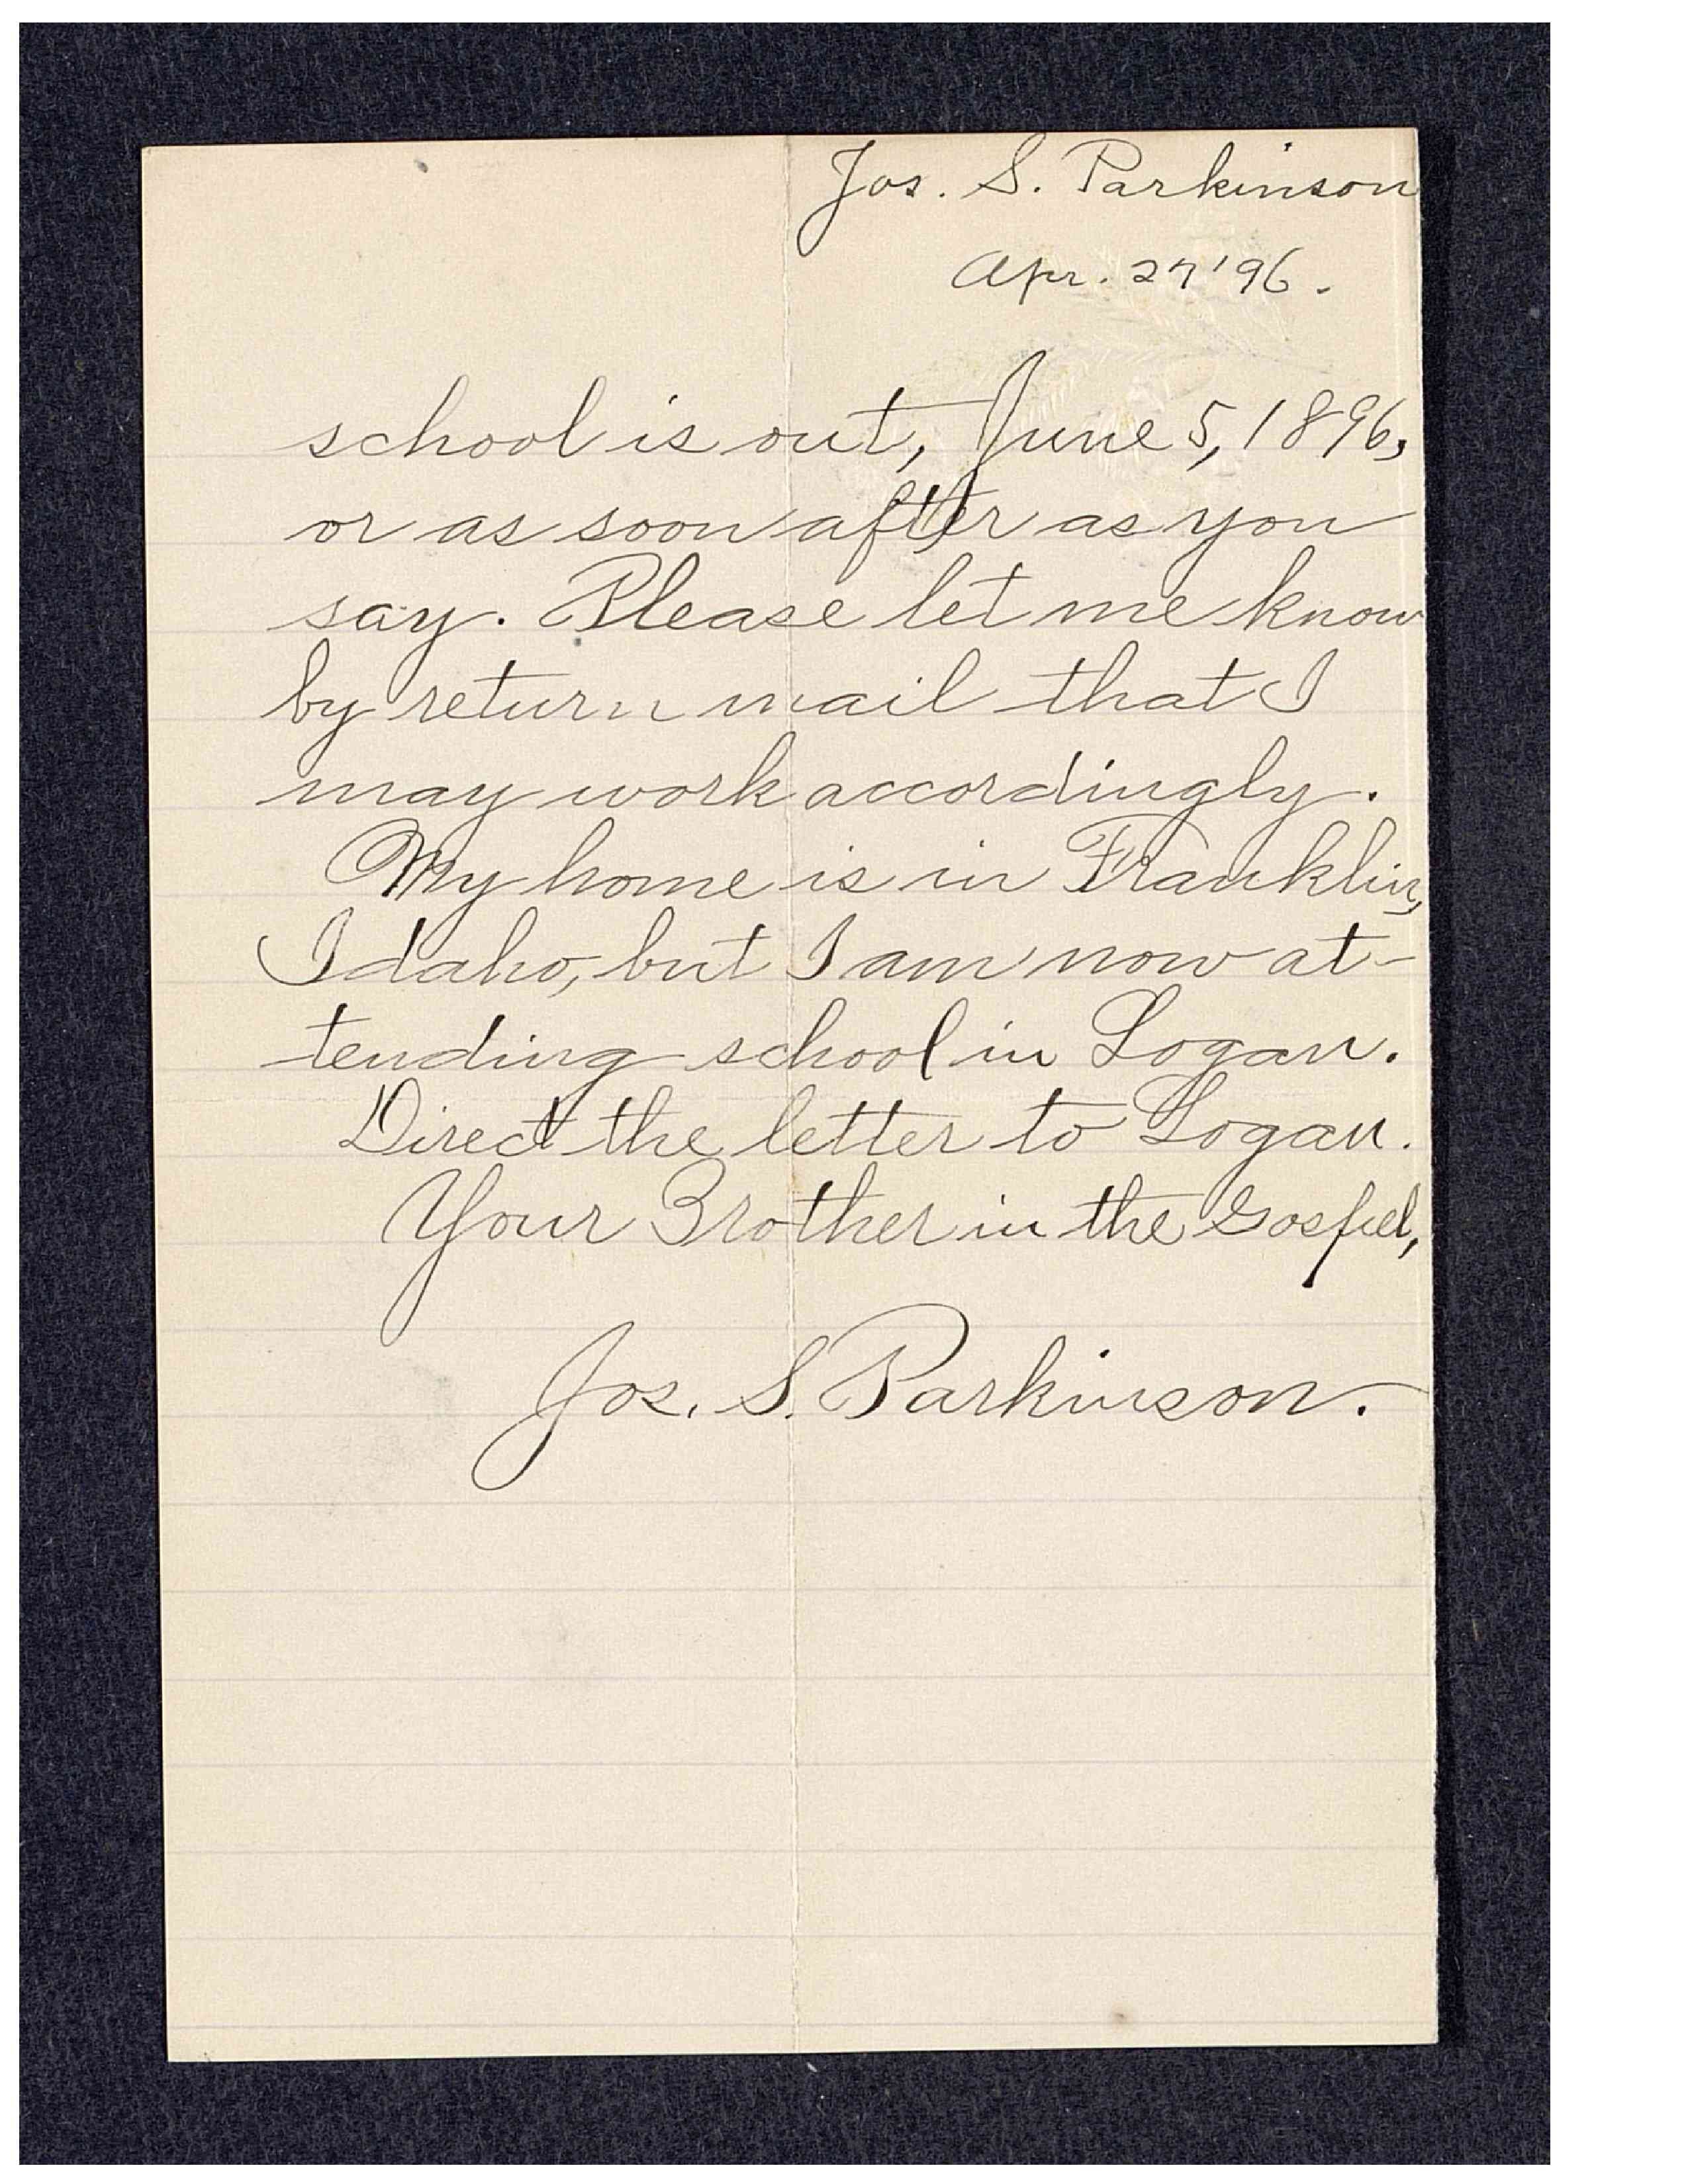 Jos. S. Parkinson
Apr. 27 '96.
school is out, June 5, 1896,
or as soon after as you
say. Please let me know
by return mail that I
may work accordingly.
My home is in Franklin,
Idaho, but I am now at-
tending school in Logan.
Direct the letter to Logan.
Your Brother in the Gospel,
Jos. S. Parkinson.